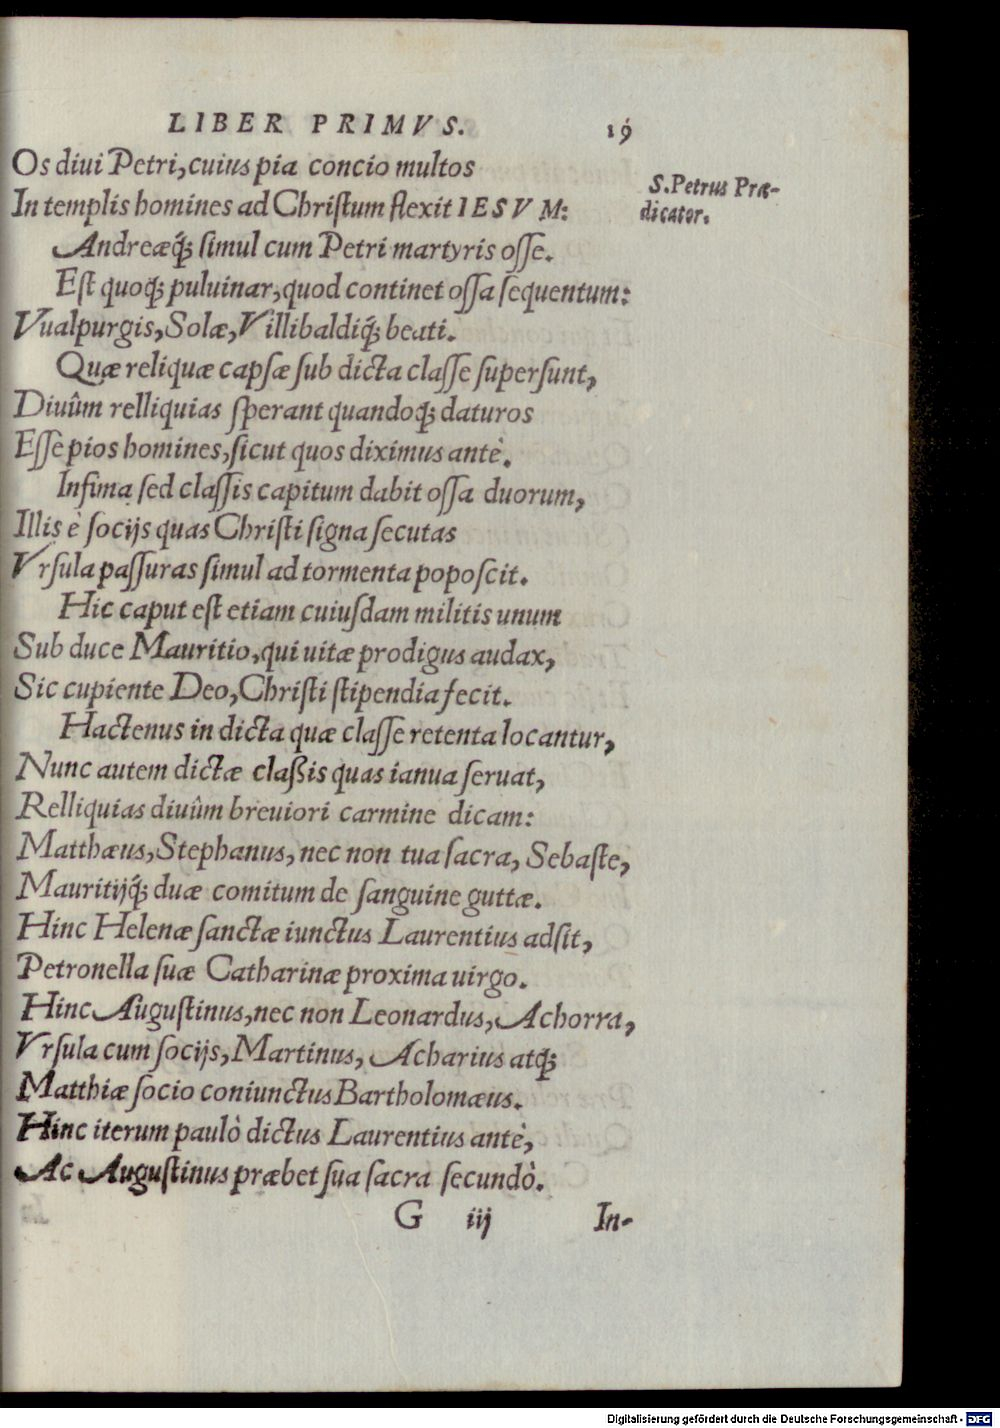 LIBER PRIMVS. 19
Os diui Petri, cuius pia concio multos
S. Petrus Præ-
dicator.
In templis homines ad Chriſtum flexit IESVM:
Andreæq́; simul cum Petri martyris oſſe.
Eſt quoq; puluinar, quod continet oſſa ſequentum:
Vualpurgis, Solæ, Villibaldiq́; beati.
Quæ reliquæ capſæ ſub dicta claſſe ſuperſunt,
Diuûm relliquias ſperant quandoq; daturos
Eſſe pios homines, ſicut quos diximus antè.
Infima ſed claſſis capitum dabit oſſa duorum,
Illis è ſocijs quas Chriſti ſigna ſecutas
Vrſula paſſuras ſimul ad tormenta popoſcit.
Hic caput eſt etiam cuiuſdam militis unum
Sub duce Mauritio, qui uitæ prodigus audax,
Sic cupiente Deo, Chriſti ſtipendia fecit.
Hactenus in dicta quæ claſſe retenta locantur,
Nunc autem dictæ claßis quas ianua ſeruat,
Relliquias diuûm breuiori carmine dicam:
Matthæus, Stephanus, nec non tua ſacra, Sebaſte,
Mauritijq́; duæ comitum de ſanguine guttæ.
Hinc Helenæ ſanctæ iunctus Laurentius adſit,
Petronella ſuæ Catharinæ proxima uirgo.
Hinc Auguſtinus, nec non Leonardus, Achorra,
Vrſula cum ſocijs, Martinus, Acharius atq;
Matthiæ ſocio coniunctus Bartholomæus.
Hinc iterum paulò dictus Laurentius antè,
Ac Auguſtinus præbet ſua ſacra ſecundò.
G iij In-
Digitalisierung gefördert durch die Deutsche Forschungsgemeinschaft - DFG